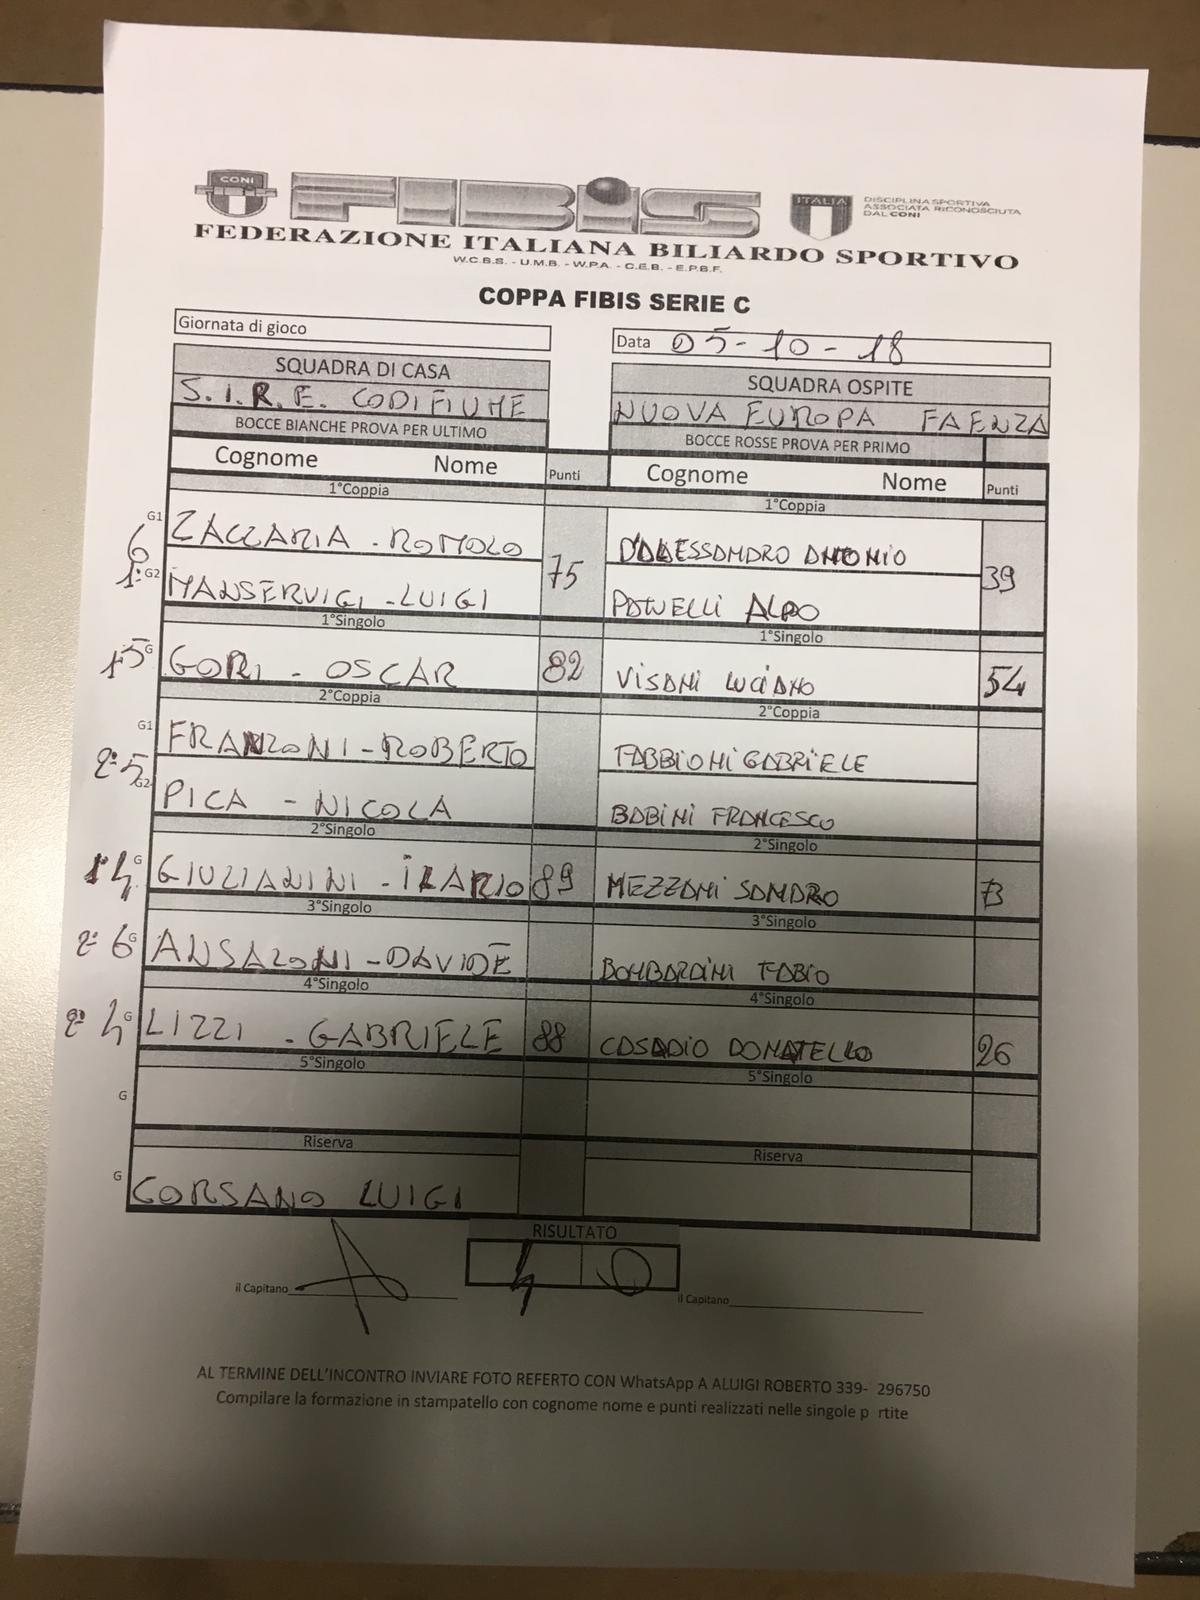 CONI
FIBiS
ITALIA
DISCIPLINA SPORTIVA
ASSOCIATA RICONOSCIUTA
DAL CONI
FEDERAZIONE ITALIANA BILIARDO SPORTIVO
W.C.B.S. - U.M.B. - W.P.A. - C.E.B. - E.P.B.F.
COPPA FIBIS SERIE C
Giornata di gioco
Data 05-10-18
SQUADRA DI CASA
SQUADRA OSPITE
S.I.R.E. CODIFIUME
NUOVA EUROPA FAENZA
BOCCE BIANCHE PROVA PER ULTIMO
BOCCE ROSSE PROVA PER PRIMO
Cognome Nome Punti Cognome Nome Punti
1°Coppia 1°Coppia
G1 ZACCARIA - ROMOLO 75 D'ALESSANDRO ANTONIO 39
6
1° G2 MANSERVIGI - LUIGI ALDO
1°Singolo 1°Singolo
1° 5 G GORI - OSCAR 82 VISANI LUCIANO 54
2°Coppia 2°Coppia
G1 FRANZONI - ROBERTO FABBIONI GABRIELE
2° 5
G2 PICA - NICOLA BABINI FRANCESCO
2°Singolo 2°Singolo
1° 4 G GIULIANINI - ILARIO 89 MEZZANI SANDRO 73
3°Singolo 3°Singolo
2° 6 G ANSALONI - DAVIDE BOMBARDINI FABIO
4°Singolo 4°Singolo
2° 4 G LIZZI - GABRIELE 88 CASADIO DONATELLO 26
5°Singolo 5°Singolo
G
Riserva Riserva
G CORSANO LUIGI
RISULTATO
4 0
il Capitano il Capitano
AL TERMINE DELL'INCONTRO INVIARE FOTO REFERTO CON WhatsApp A ALUIGI ROBERTO 339- 296750
Compilare la formazione in stampatello con cognome nome e punti realizzati nelle singole p rtite